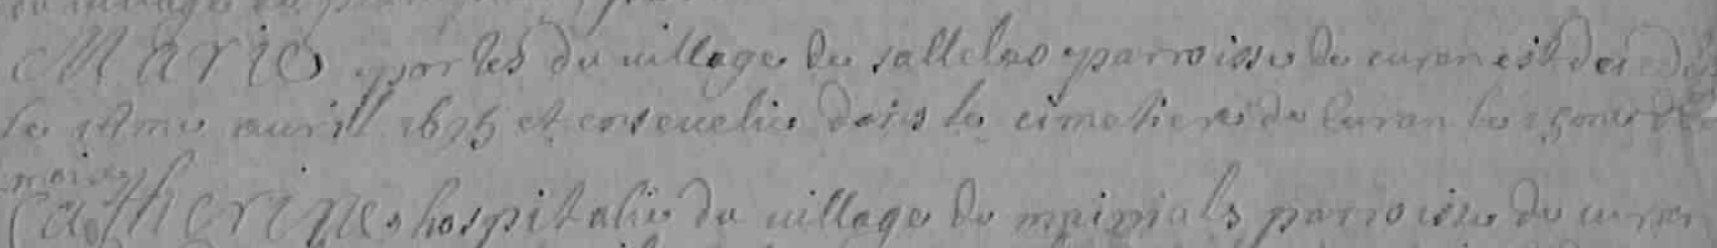 du village de
Marie portes du village de sallelas parroisse de curan est decedée
le avril 1695 et ensevelie dans le cimetiere de Curan le
mois
Catherine hospitalie du village de mainials parroisse de curan